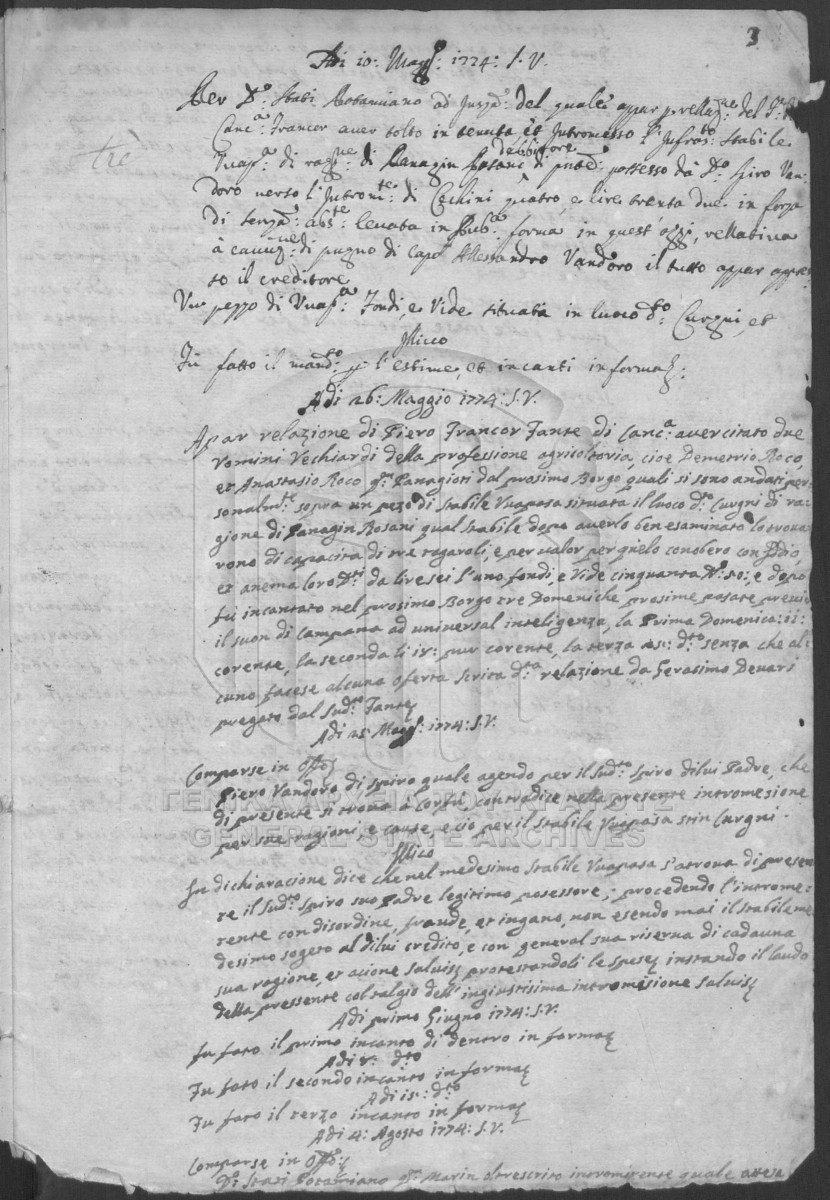 3
Adi 10: Magg: 1774: S.V.
Per D: Stati Potamiano ad del quale appar p rellaz:ne del
Canc:a Francor aver tolto in tenuta et Intromesso l'Infras:to Stabile
tre
di rag:ne di Panagin debbitore di possesso da D:o Spiro Van:
doro verso l'Introm:te di Cechini quatro, e lire trenta due in forza
di levata in Pub:a forma in quest' rellativa
à di pugno di Cap: Allessandro Vandoro il tutto appar
to il creditore
Un pezzo di Fondi, e Vide situata in luoco d:to Curgni, et
Illico
Fù fatto il mand:to p l'estime, et incanti in forma:
Adi 26: Maggio 1774: S.V.
Apar relazione di Piero Francor Fante di Canc:a aver citato due
Vomini Vechiardi della professione agricoltoria, cioè Demetrio Roco,
et Anastasio Roco q:m Panagioti dal prosimo Borgo quali si sono andati per:
sonalm:te sopra un pezo di stabile Vuapasa situata il luoco d:to Curgni di ra:
gione di Panagin Rosani qual stabile dopo averlo ben esaminato lo trova:
rono di capacità di tre e per valor per quelo conobero con Idio,
et anema loro da lire sei l'uno fondi, e Vide cinquanta N:o 50:, e dopo
fu incantato nel prosimo Borgo tre Domeniche prosime pasate previo
il suon di Campana ad universal inteligenza, la Prima Domenica: ii:
corente, la seconda li pur corente, la terza d:to senza che al:
cuno facese alcuna oferta scrita d:ta relazione da Gerasimo Devari
pregato dal Sud:to Fante
Adi 25 Magg: 1774: S.V.
Comparse in Off:o
Piero Vandoro di Spiro quale agendo per il Sud:to Spiro di lui Padre, che
di presente si trova à Corfù, contradice nella presente intromesione
per sue ragioni e cause, e ciò per il stabile Vuapasa Curgni.
Illico
In dichiaracione dice che nel medesimo stabile Vuapasa s'atrova di presen
te il Sud:to Spiro suo Padre legitimo posessore, procedendo l'introme:
tente con disordine, fraude, et ingano, non esendo mai il stabile me
desimo sogeto al di lui credito, e con general sua riserva di cadauna
sua ragione, et acione salvis protestandoli le spese instando il laudo
della pressente col talgio dell'ingiustisima intromisione salvis
Adi primo Giugno 1774: S.V.
Fu fato il primo incanto di dentro in forma
Adi d:to
Fu fato il secondo incanto in forma
Adi d:to
Fu fato il terzo incanto in forma
Adi 4: Agosto 1774: S.V.
Comparse in Off:o
D: Stati Potamiano q:m Marin oltrescrito intromitente quale
ΓΕΝΙΚΑ ΑΡΧΕΙΑ ΤΟΥ ΚΡΑΤΟΥΣ
GENERAL STATE ARCHIVES